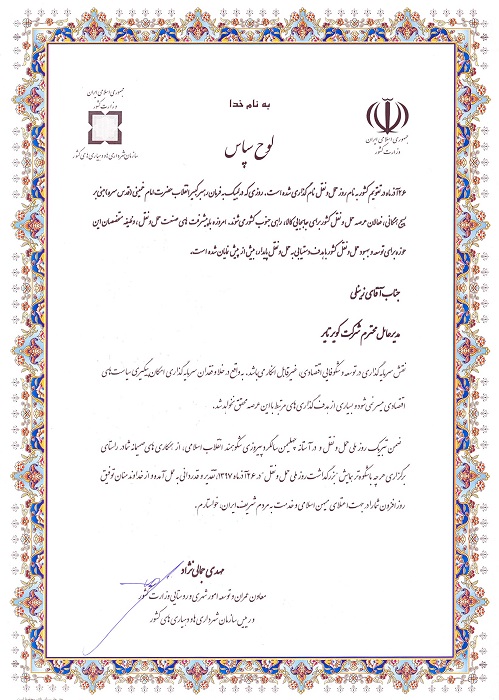 به نام خدا
جمهوری اسلامی ایران
وزارت کشور
جمهوری اسلامی ایران
وزارت کشور
سازمان شهرداری‌ها و دهیاری‌های کشور
لوح سپاس
۲۶ آذرماه در تقویم کشور به نام روز حمل و نقل نام گذاری شده است. روزی که در لبیک به فرمان رهبر کبیر انقلاب حضرت امام خمینی (قدس سره) مبنی بر
بسیج همگانی، فعالان عرصه حمل و نقل کشور برای جابجایی کالا، راهی جنوب کشور می شوند. امروزه با پیشرفت های صنعت حمل و نقل، وظیفه متخصصان این
حوزه برای توسعه و بهبود حمل و نقل کشور با هدف دستیابی به حمل و نقل پایدار، بیش از پیش نمایان شده است.
جناب آقای زینلی
مدیرعامل محترم شرکت کویر تایر
نقش سرمایه گذاری در توسعه و شکوفایی اقتصادی، غیرقابل انکار می باشد. به واقع در خلاء و فقدان سرمایه گذاری امکان پیگیری سیاست های
اقتصادی میسر نمی شود و بسیاری از هدف گذاری های مرتبط با این عرصه محقق نخواهد شد.
ضمن تبریک روز ملی حمل و نقل و در آستانه چهلمین سالگرد پیروزی شکوهمند انقلاب اسلامی، از همکاری های صمیمانه شما در راستای
برگزاری هرچه باشکوه تر همایش "بزرگداشت روز ملی حمل و نقل" در ۲۶ آذرماه ۱۳۹۷، تقدیر و قدردانی به عمل آمده و از خداوند منان توفیق
روزافزون شما را در جهت اعتلای میهن اسلامی و خدمت به مردم شریف ایران، خواستارم.
مهدی جمالی نژاد
معاون عمران و توسعه امور شهری و روستایی وزارت کشور
و رییس سازمان شهرداری ها و دهیاری های کشور